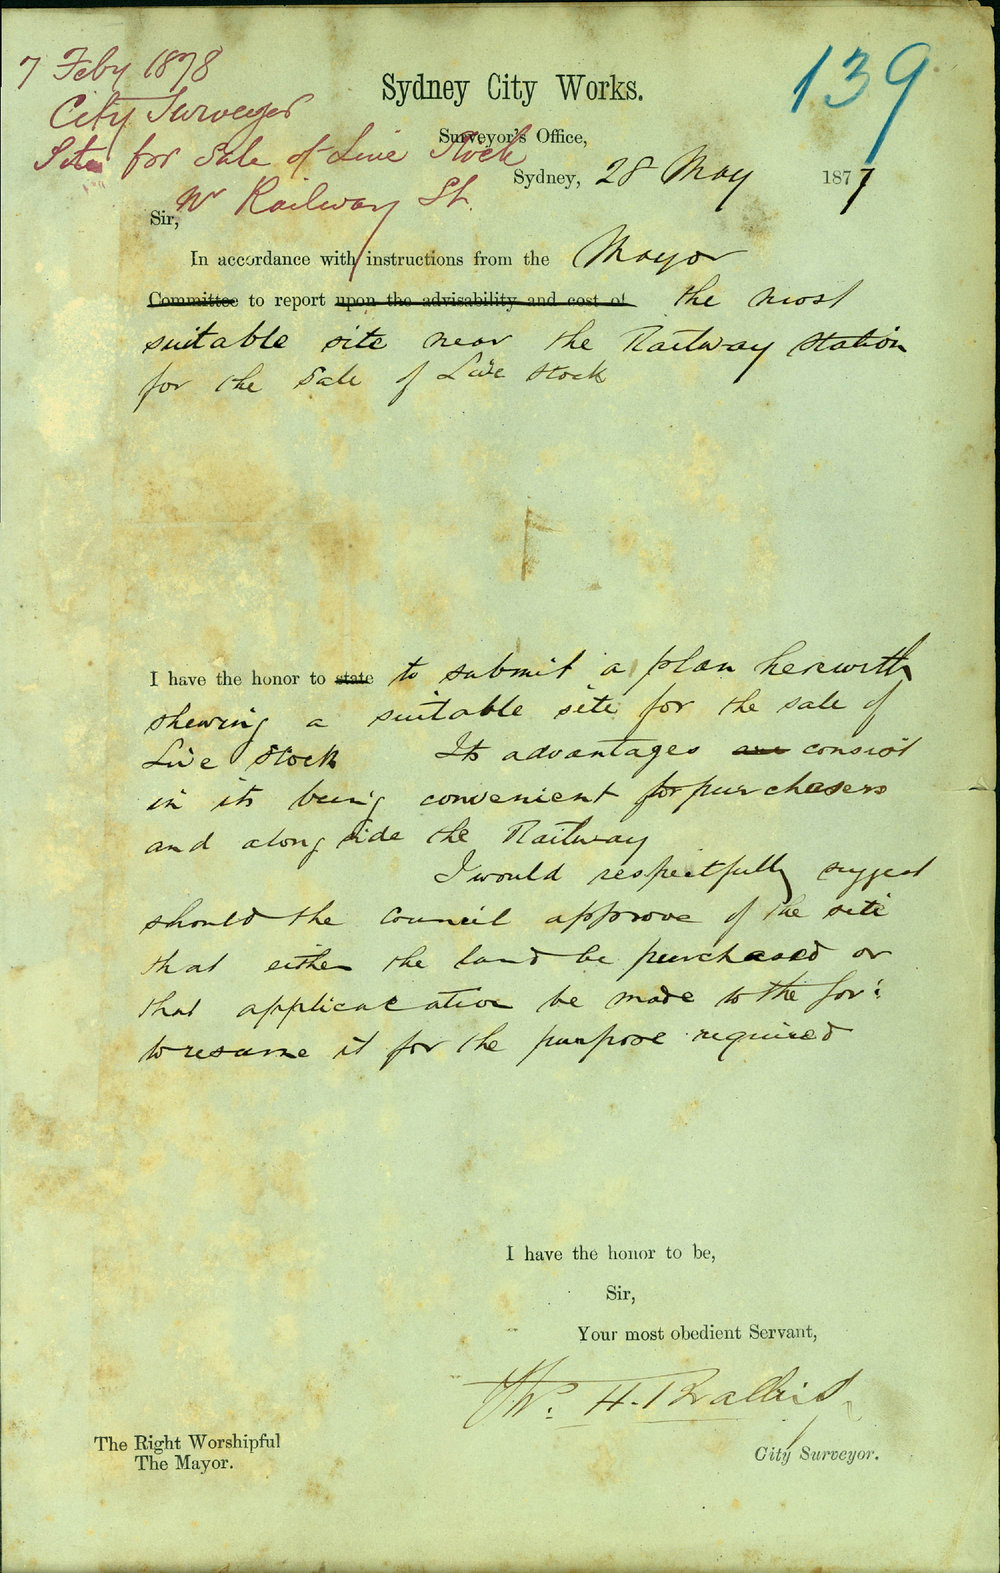 7 Feby 1878
City Surveyor
Site for Sale of Live Stock
Nr Railway St.
139
Sydney City Works.
Surveyor's Office,
Sydney, 28 May 1877
Sir,
In accordance with instructions from the Mayor
Committee to report upon the advisability and cost of the most
suitable site near the Railway Station
for the Sale of Live Stock
I have the honor to state to submit a plan herewith
shewing a suitable site for the sale of
Live Stock Its advantages are consist
in its being convenient for purchasers
and along side the Railway
I would respectfully suggest
should the Council approve of the site
that either the land be purchased or
that applicacation be made to the Gov:
to resume it for the purpose required
I have the honor to be,
Sir,
Your most obedient Servant,
H.
City Surveyor.
The Right Worshipful
The Mayor.